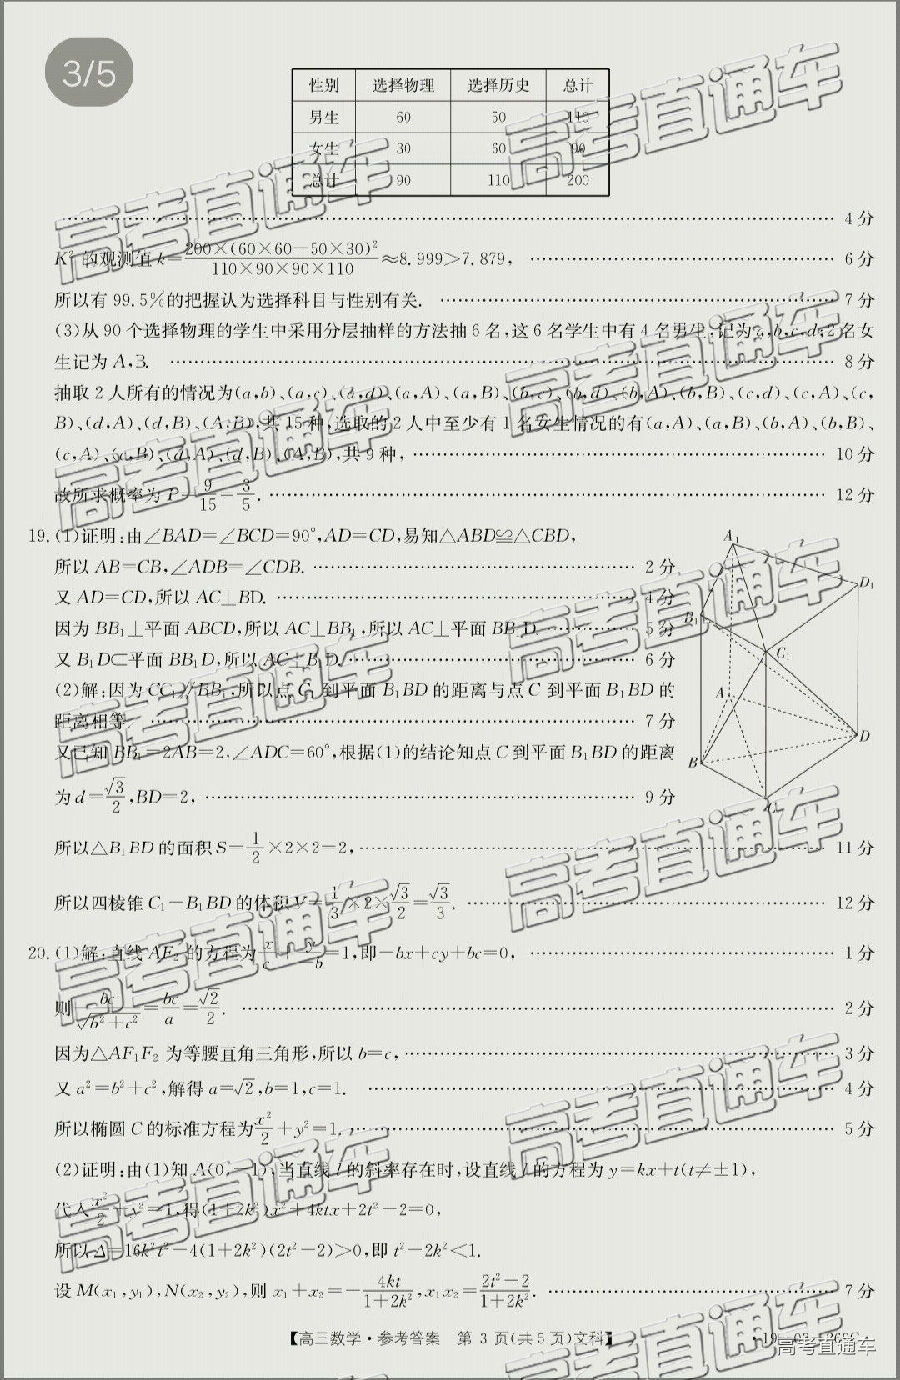 3/5
性别 选择物理 选择历史 总计
男生 60 50 110
女生 30 60 90
总计 90 110 200
4分
K²的观测值k=200×(60×60−50×30)²/110×90×90×110≈8.999>7.879, 6分
所以有99.5%的把握认为选择科目与性别有关. 7分
(3)从90个选择物理的学生中采用分层抽样的方法抽6名,这6名学生中有4名男生,记为a,b,c,d;2名女
生记为A,B. 8分
抽取2人所有的情况为(a,b)、(a,c)、(a,d)、(a,A)、(a,B)、(b,c)、(b,d)、(b,A)、(b,B)、(c,d)、(c,A)、(c,
B)、(d,A)、(d,B)、(A,B),共15种,选取的2人中至少有1名女生情况的有(a,A)、(a,B)、(b,A)、(b,B)、
(c,A)、(c,B)、(d,A)、(d,B)、(A,B),共9种, 10分
故所求概率为P=9/15=3/5. 12分
19.(1)证明:由∠BAD=∠BCD=90°,AD=CD,易知△ABD≌△CBD,
所以AB=CB,∠ADB=∠CDB. 2分
又AD=CD,所以AC⊥BD. 4分
因为BB₁⊥平面ABCD,所以AC⊥BB₁,所以AC⊥平面BB₁D. 5分
又B₁D⊂平面BB₁D,所以AC⊥B₁D. 6分
(2)解:因为CC₁//BB₁,所以点C₁到平面B₁BD的距离与点C到平面B₁BD的
距离相等. 7分
又已知BB₁=2AB=2,∠ADC=60°,根据(1)的结论知点C到平面B₁BD的距离
为d=√3/2,BD=2, 9分
所以△B₁BD的面积S=1/2×2×2=2, 11分
所以四棱锥C₁−B₁BD的体积V=1/3×2×√3/2=√3/3. 12分
A₁
D₁
B₁
C₁
A
D
B
C
20.(1)解:直线AF₂的方程为x/c+y/−b=1,即−bx+cy+bc=0, 1分
则bc/√b²+c²=bc/a=√2/2. 2分
因为△AF₁F₂为等腰直角三角形,所以b=c, 3分
又a²=b²+c²,解得a=√2,b=1,c=1. 4分
所以椭圆C的标准方程为x²/2+y²=1. 5分
(2)证明:由(1)知A(0,−1),当直线l的斜率存在时,设直线l的方程为y=kx+t(t≠±1),
代入x²/2+y²=1,得(1+2k²)x²+4ktx+2t²−2=0,
所以Δ=16k²t²−4(1+2k²)(2t²−2)>0,即t²−2k²<1.
设M(x₁,y₁),N(x₂,y₂),则x₁+x₂=−4kt/1+2k²,x₁x₂=2t²−2/1+2k². 7分
【高三数学·参考答案 第3页(共5页)文科】
高考直通车